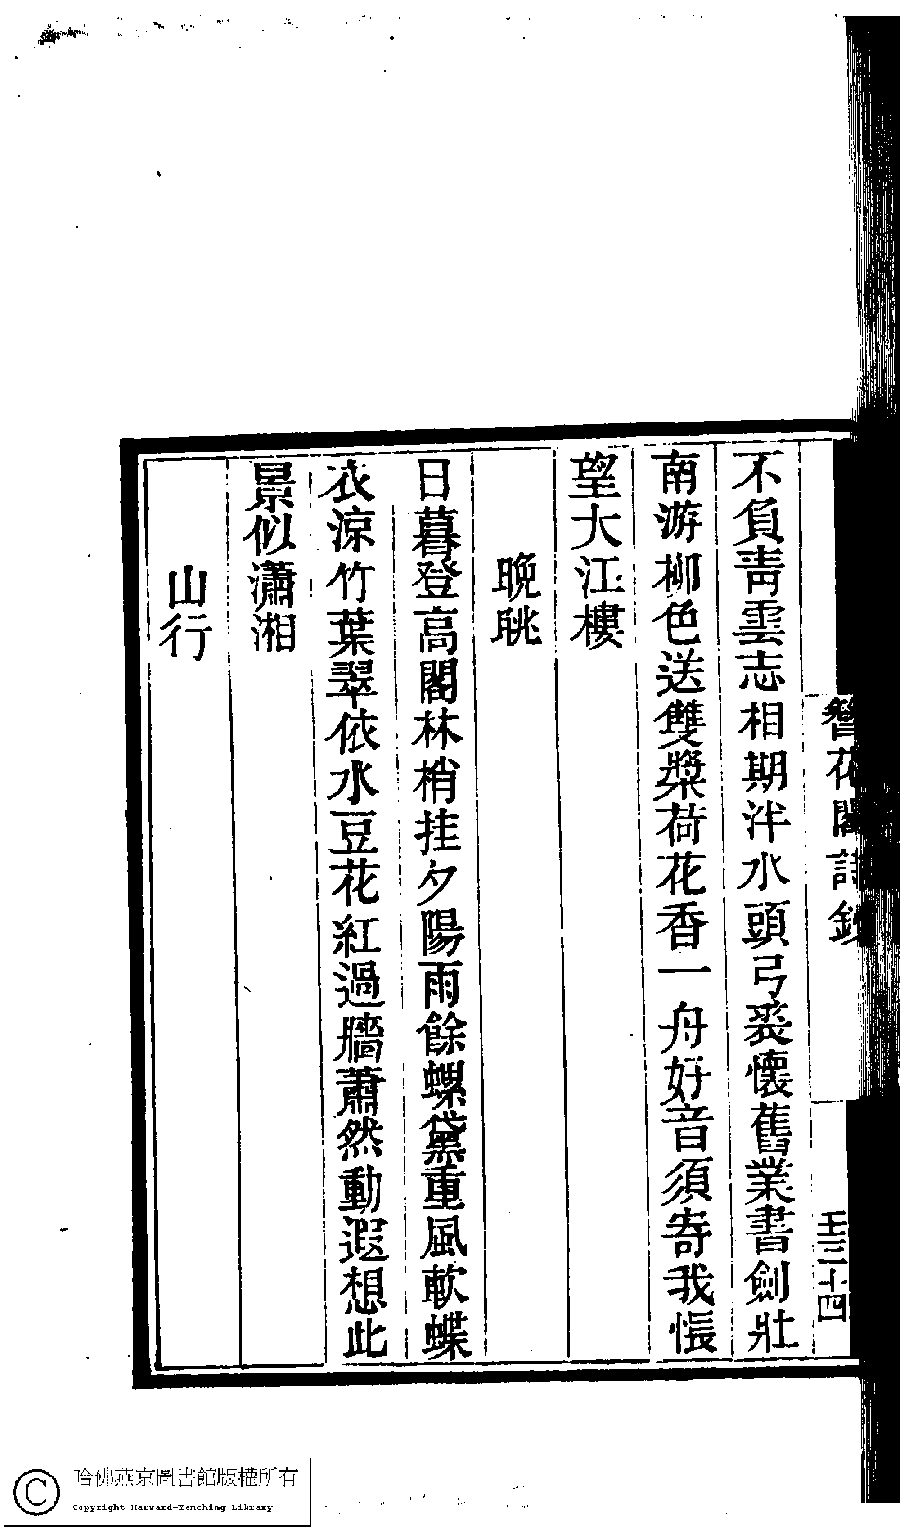 簪花閣詩鈔
壬三十四
不負靑雲志相期泮水頭弓裘懷舊業書劍壯
南游柳色送雙槳荷花香一舟好音須寄我悵
望大江樓
晩眺
日暮登高閣林梢挂夕陽雨餘螺黛重風軟蝶
衣涼竹葉翠依水豆花紅過牆蕭然動遐想此
景似瀟湘
山行
哈佛燕京圖書館版權所有
Copyright Harvard-Yenching Library